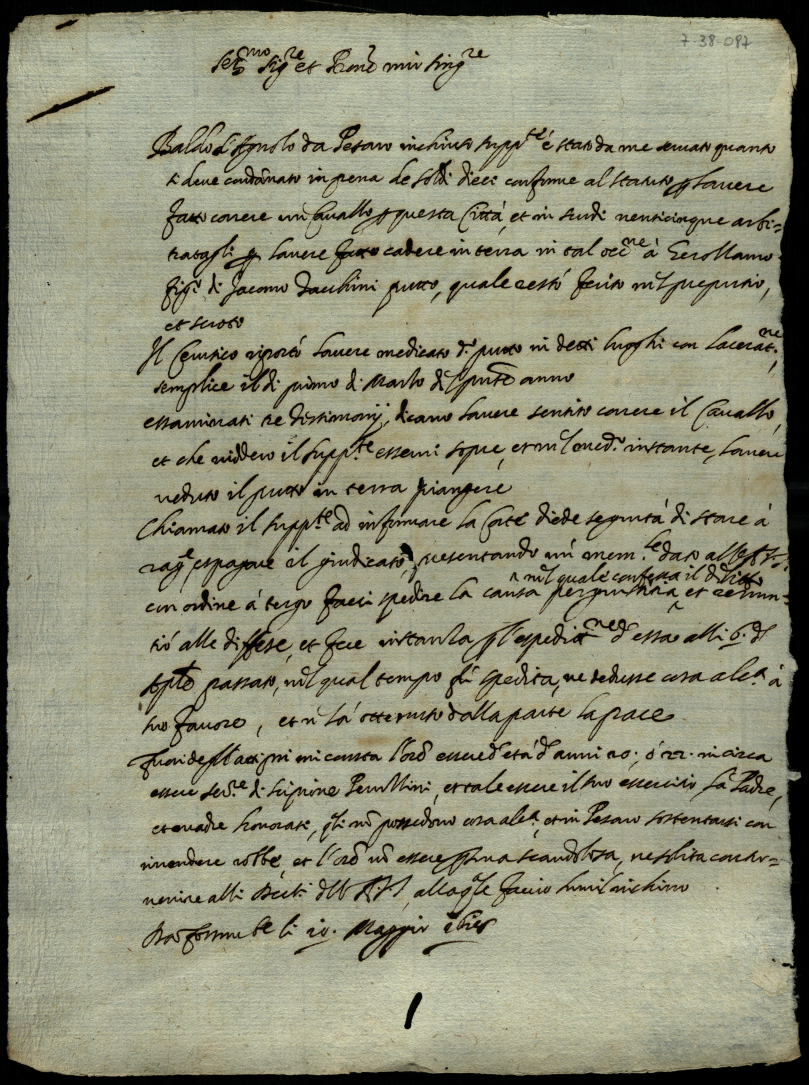 7-38-087
Ser.mo Sig.re et Pron.e mio sing.re
Baldo d'Agnolo da Pesaro inchiuso supp.te è stato da me servato quanto
si deve condannato in pena de soldi dieci conforme al statuto p. havere
fatto correre un Cavallo p. questa Città, et in scudi venticinque arbi=
tratagli p. havere fatto cadere in terra in tal occ.ne à Gerollamo
fig.o di Jacomo Vacchini putto, quale restò ferito nel preputio,
et scroto
Il Cerusico riportò havere medicato d.o putto in detti luoghi con lacerat.ne
semplice il dì primo di Marzo del p.nte anno
essaminati tre Testimonij, dicano havere sentito correre il Cavallo,
et che viddero il supp.te esservi sopra, et nel med.o instante, havere
veduto il putto in terra piangere
Chiamato il supp.te ad informare la Corte diede segurtà di stare à
rag.e, e pagare il giudicato, presentando un mem.le dato all'A.V.S.
con ordine à tergo facci spedire la causa per giustitia nel quale confessa il delitto et renun=
tiò alle diffese, et fece instanza p. l'espedit.ne d'essa alli 6. d'
Aple passato, nel qual tempo fù spedita, ne dedusse cosa alc.a à
suo favore, et n. hà ottenuto dalla parte la pace
Fuori degl'atti poi mi consta l'or.e essere d'età d'anni 20. ò 22. in circa
essere ser.re di Scipione Perullini, et tale essere il suo essercitio hà Padre,
et madre honorati, q.li nō possedono cosa alc.a, et in Pesaro sostentarsi con
rivendere robbe, et l'or.e nō essere p.sona scandolosa, ne solita contra=
venire alli Decreti dell'A.V.S., alla q.le faccio humil inchino
li 10. Maggio